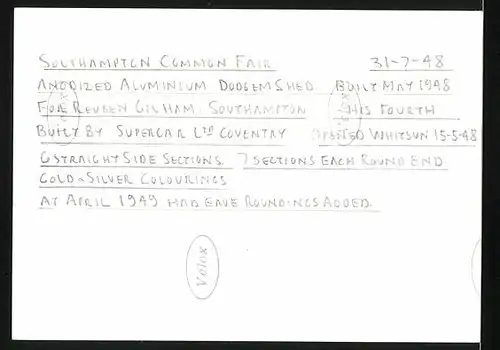 SOUTHAMPTON COMMON FAIR 31-7-48
ANODIZED ALUMINIUM DODGEM SHED BUILT MAY 1948
FOR REUBEN GILHAM. SOUTHAMPTON HIS FOURTH
BUILT BY SUPERCAR LTD COVENTRY OPENED WHITSUN 15-5-48
6 STRAIGHT SIDE SECTIONS 7 SECTIONS EACH ROUND END
GOLD & SILVER COLOURINGS
AT APRIL 1949 HAD EAVE ROUNDINGS ADDED
Velox
Velox
Velox